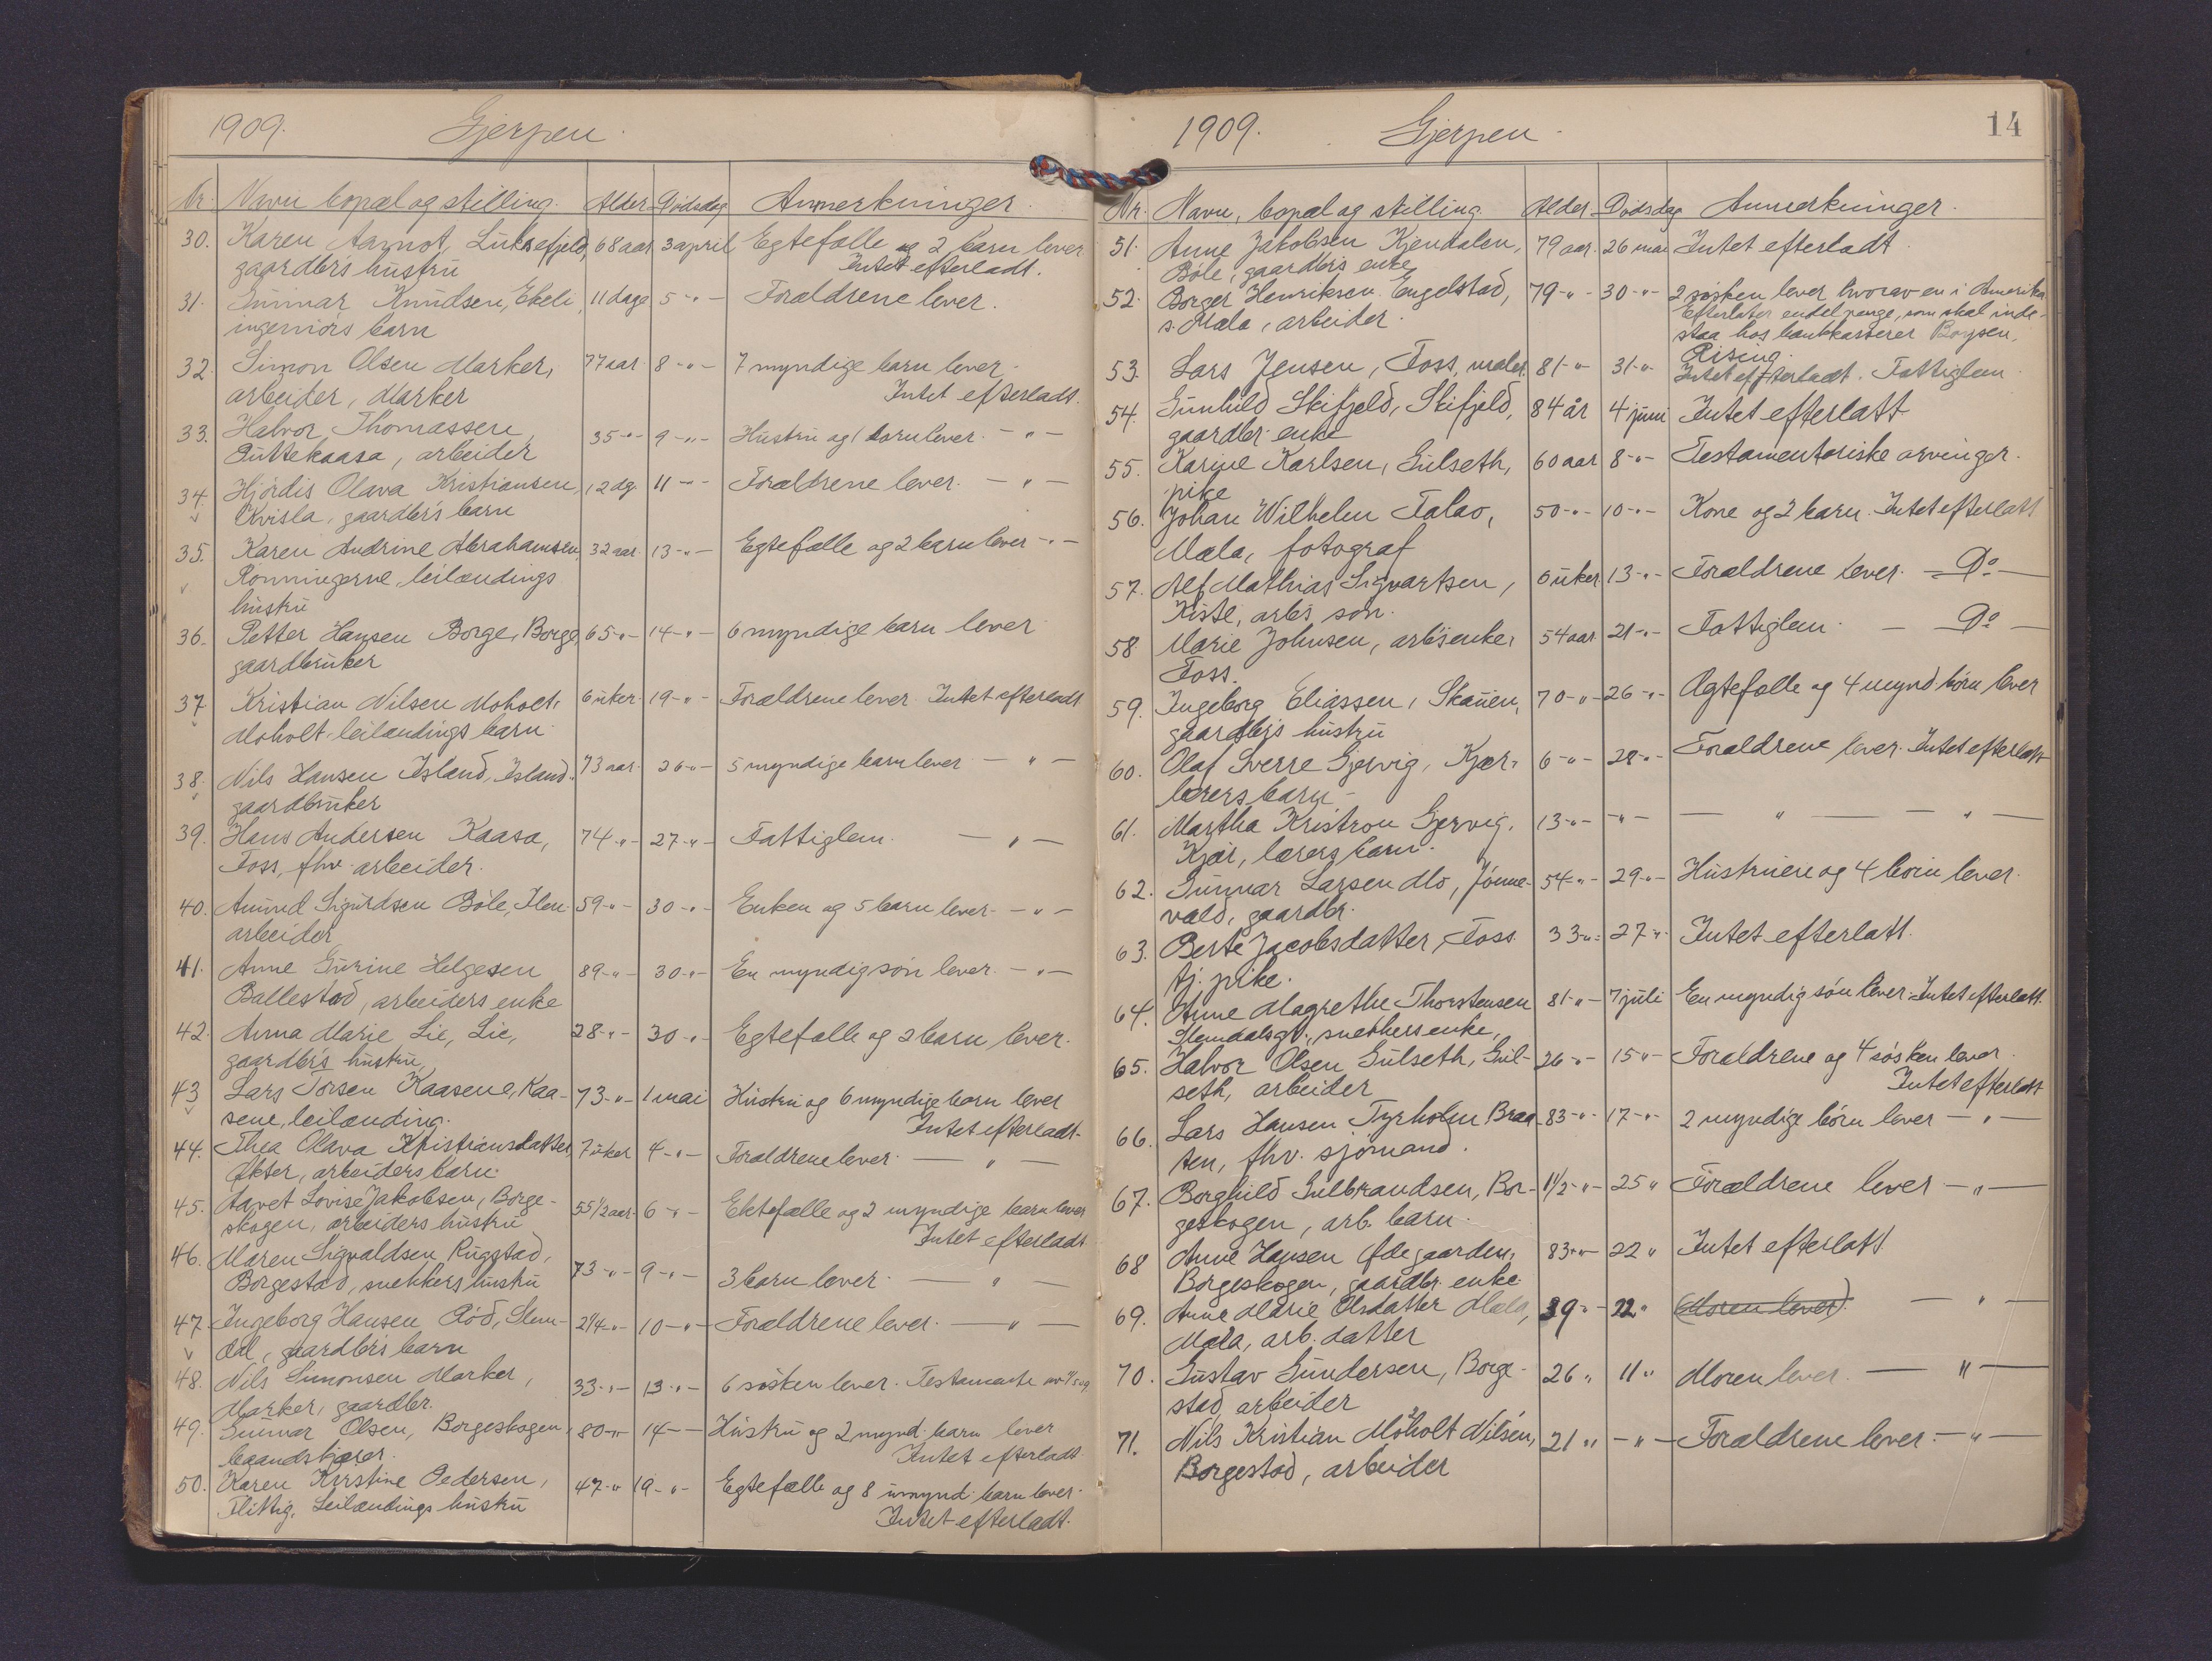 1909. Gjerpen.
Nr. Navn bopæl og stilling. Alder Dødsdag Anmerkninger.
30. Karen Aamot, Luksefjeld, 68 aar 3 april Egtefælle og 2 barn lever
gaardbr's hustru Intet efterladt.
31. Gunnar Knudsen, Ekeli, 11 dage 5 -"- Forældrene lever.
ingeniörs barn
32. Simon Olsen Marker, 77 aar 8 -"- 7 myndige barn lever.
arbeider, Marker Intet efterladt.
33. Halvor Thomassen 35 -"- 9 -"- Hustru og 1 barn lever. - " -
Puttekaasa, arbeider
34. Hjördis Olava Kristiansen, 12 dg. 11 -"- Forældrene lever. - " -
Kvisla, gaardbr's barn
35. Karen Andrine Abrahamsen, 32 aar 13 -"- Egtefælle og 2 barn lever - " -
Rönningerne, leilændings
hustru
36. Petter Hansen Borge, Borge, 65 -"- 14 -"- 6 myndige barn lever
gaardbruker
37 Kristian Nilsen Moholt, 6 uker 19 -"- Forældrene lever. Intet efterladt
Moholt leilændings barn
38. Nils Hansen Island, Island 73 aar 26 -"- 5 myndige barn lever - " -
gaardbruker
39. Hans Andersen Kaasa, 74 -"- 27 -"- Fattiglem. - " -
Foss, fhv. arbeider.
40. Amund Sigurdsen Böle, 59 -"- 30 -"- Enken og 5 barn lever - " -
arbeider
41. Anne Gurine Helgesen 89 -"- 30 -"- En myndig sön lever. - " -
Ballestad, arbeiders enke
42. Anna Marie Lie, Lie, 28 -"- 30 -"- Egtefælle og 2 barn lever.
gaardbr's hustru
43 Lars Torsen Kaasene, Kaa- 73 -"- 1 mai Hustru og 6 myndige barn lever
sene, leilænding. Intet efterladt.
44. Thea Olava Kristiansdatter, 7 uker 4 -"- Forældrene lever. - " -
Økter, arbeiders barn.
45. Aavet Lovise Jakobsen, Borge- 55 1/2 aar 6 -"- Ektefælle og 2 myndige barn lever
skogen, arbeiders hustru Intet efterladt
46. Maren Sigvaldsen Rugstad,
Borgestad, snekkers hustru 73 -"- 9 -"- 3 barn lever. - " -
47. Ingeborg Hansen Röd, Slem- 2 1/4 -"- 10 -"- Forældrene lever. - " -
dal, gaardbr's barn
48. Nils Simonsen Marker, 33 -"- 13 -"- 6 søsken lever. Testamente av
Marker, gaardbr.
49. Gunnar Olsen, Borgeskogen, 80 -"- 14 - - Hustru og 2 mynd. barn lever
baandskjærer. Intet efterladt
50. Karen Kirstine Pedersen, 47 -"- 19 -"- Egtefælle og 8 umynd. barn lever.
Flittig, Leilændings hustru Intet efterladt.
1909. Gjerpen. 14
Nr. Navn, bopæl og stilling. Alder. Dödsdag Anmerkninger.
51. Anne Jakobsen Kjendalen, 79 aar. 26 mai Intet efterladt.
Böle, gaardbr's enke
52. Borger Henriksen Engelstad, 79 -"- 30 -"- 2 søsken lever hvorav en i Amerika
s. Mæla, arbeider. Efterlater endel penge, som skal inde-
staa hos bankkasserer Boysen,
Rising.
53. Lars Jensen, Foss, maler. 81 -"- 31 -"- Intet efterladt. Fattiglem.
54. Gunhild Skifjeld, Skifjeld, 84 år 4 juni Intet efterlatt
gaardbr. enke
55. Karine Karlsen, Gulseth, 60 aar 8 -"- Testamentariske arvinger.
pike
56. Johan Wilhelm Falao, 50 -"- 10 -"- Kone og 2 barn. Intet efterlatt
Mæla, fotograf
57. Alf Mathias Sigvartsen, 6 uker 13 -"- Forældrene lever. - Do -
Kiste, arb's sön.
58 Marie Johnsen, arb's enke, 54 aar 21 -"- Fattiglem. - Do -
Foss.
59. Ingeborg Eliassen, Skauen, 70 -"- 26 -"- Ægtefælle og 4 mynd. börn lever
gaardbr's hustru
60. Olaf Sverre Gjervig, Kjær, 6 -"- 28 -"- Forældrene lever. Intet efterlatt
lærers barn -
61. Martha Kristron Gjervig, 13 -"- -"- - " - - " -
Kjær, lærers barn.
62. Gunnar Larsen Mo, Jönne- 54 -"- 29 -"- Hustruen og 4 börn lever.
vald, gaardbr.
63. Berte Jacobsdatter, Foss 33 -"- 27 -"- Intet efterlatt.
tj. pike.
64. Anne Magrethe Thorstensen 81 -"- 7 juli En myndig sön lever. Intet efterlatt.
Slemdalsgt., snekkers enke,
65. Halvor Olsen Gulseth, Gul- 26 -"- 15 -"- Forældrene og 4 søsken lever.
seth, arbeider Intet efterlatt
66. Lars Hansen Tyrholm Braa- 83 -"- 17 -"- 2 myndige börn lever - " -
ten, fhv. sjömand.
67. Borghild Gulbrandsen, Bor- 1 1/2 -"- 25 " Forældrene lever - " -
geskogen, arb. barn.
68 Anne Hansen Ødegaarden, 83 -"- 22 " Intet efterlatt
Borgeskogen, gaardbr. enke.
69. Anne Marie Olsdatter Mæla, 39 -"- 22 " (Moren lever). - " -
Mæla, arb. datter
70. Gustav Gundersen, Borge- 26 " 11 " Moren lever. - " -
stad, arbeider
71. Nils Kristian Möholt Nilsen, 21 " - " - Forældrene lever. - " -
Borgestad, arbeider